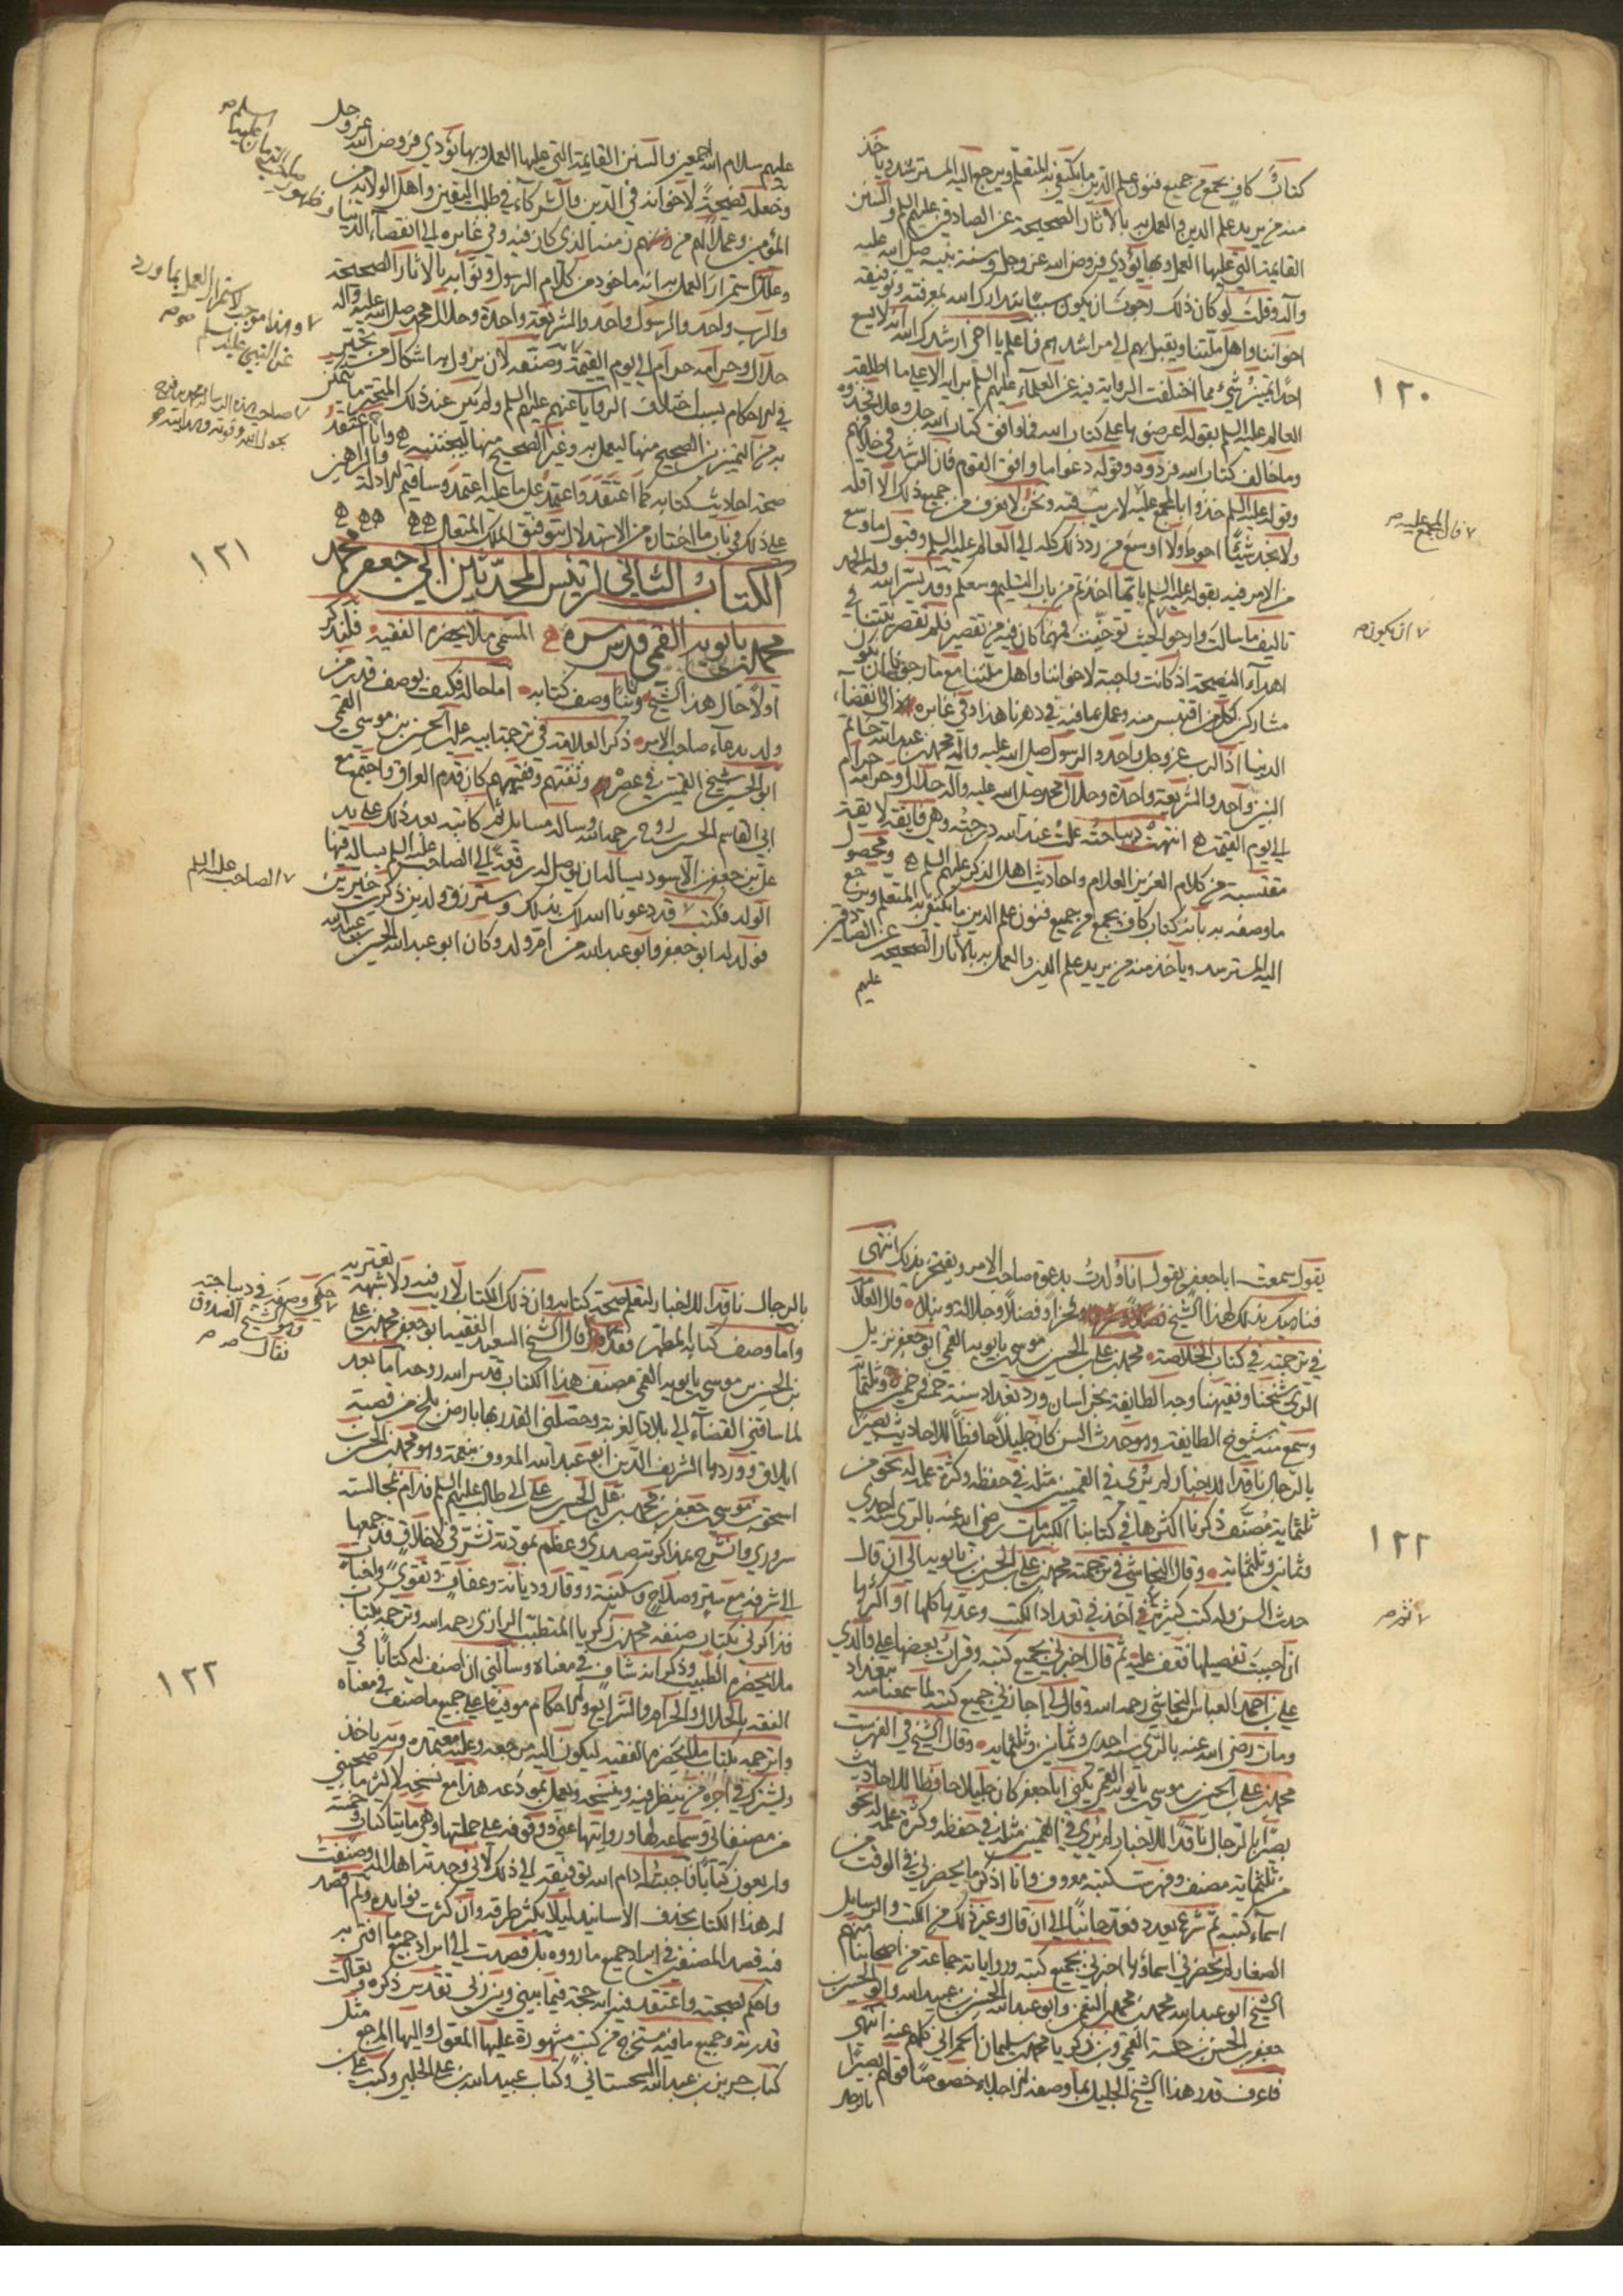 كتاب كاف يجمع من جميع فنون علم الدين ما يكتفي به المتعلم ويرجع اليه المسترشد وياخذ
منه من يريد علم الدين والعمل به بالاثار الصحيحة عن الصادقين عليهم السلم والسنن
القايمة التي عليها العمل وبها يؤدي فروض الله عز وجل وسنة نبيه صلى الله عليه
واله وقلت لو كان ذلك رجوت ان يكون سببا يتدارك الله بمعرفته وتوفيقه
اخواننا واهل ملتنا ويقبل بهم الى مراشدهم فاعلم يا اخي ارشدك الله انه لا يسع
احدا تميز شيء مما اختلفت الرواية فيه عن العلماء عليهم السلم برايه الا على ما اطلقه
العالم عليه السلم بقوله اعرضوها على كتاب الله فما وافق كتاب الله جل وعز فخذوه
وما خالف كتاب الله فردوه وقوله دعوا ما وافق القوم فان الرشد في خلافهم
وقوله عليه السلم خذوا بالمجمع عليه لا ريب فيه ونحن لا نعرف من جميع ذلك الا اقله
ولا نجد شيئا احوط ولا اوسع من رد ذلك كله الى العالم عليه السلم وقبول ما وسع
من الامر فيه بقوله عليه السلم بايما اخذتم من باب التسليم وسعكم وقد يسر الله وله الحمد
تاليف ما سالت وارجو ان يكون بحيث توخيت فمهما كان فيه من تقصير فلم تقصر نيتنا في
اهداء النصيحة اذ كانت واجبة لاخواننا واهل ملتنا مع ما رجونا ان نكون
مشاركين لكل من اقتبس منه وعمل بما فيه في دهرنا هذا وفي غابره الى انقضاء
الدنيا اذ الرب عز وجل واحد والرسول صلى الله عليه واله محمد بن عبد الله خاتم
النبيين واحد والشريعة واحدة وحلال محمد صلى الله عليه واله حلال وحرامه حرام
الى يوم القيمة انتهت ديباجته علت عند الله درجته وهي فايقة لايقة
مقتبسة من كلام العزيز العلام واحاديث اهل الذكر عليهم السلم ومحصول
ما وصفه به بانه كتاب كاف يجمع من جميع فنون علم الدين ما يكتفي به المتعلم ويرجع
اليه المسترشد وياخذ منه من يريد علم الدين والعمل به بالاثار الصحيحة عن الصادقين
عليهم
١٢٠
فان المجمع عليه صح
ان يكون صح
عليهم سلام الله اجمعين والسنن القايمة التي عليها العمل وبها يؤدي فروض الله عز وجل
وجعله نصيحة لاخوانه في الدين والشركاء في طلب اليقين واهل الولاية من
المؤمنين وعملا لهم من زمنه الذي كان فيه وفي غابره الى انقضاء الدنيا
وعلل استمرار العمل به انه ماخوذ من كلام الرسول ونوابه بالاثار الصحيحة
والرب واحد والرسول واحد والشريعة واحدة وحلال محمد صلى الله عليه واله
حلال وحرامه حرام الى يوم القيمة وصنفه لان يزول به اشكال من تحير
في الاحكام بسبب اختلاف الروايات عنهم عليهم السلم ولم يكن عند ذلك المتحير ما يتمكن
به من التميز بين الصحيح منها ليعمل به وغير الصحيح منها ليجتنبه وانا اعتقد
صحة احاديث كتابه كما اعتقد واعتمد على ما عليه اعتمد وساقيم الادلة والبراهين
على ذلك في باب ما اختاره من الاستدلال بتوفيق الملك المتعال
الكتاب الثاني لرئيس المحدثين ابي جعفر محمد
بن بابويه القمي قدس سره المسمى بملا يحضره الفقيه فلنذكر
اولا حال هذا الشيخ وثانيا وصف كتابه اما حاله فكيف يوصف قدر من
ولد بدعاء صاحب الامر ذكر العلامة في ترجمة ابيه علي بن الحسين بن موسى القمي
ابو الحسن شيخ القميين في عصره وثقتهم وفقيههم كان قدم العراق واجتمع مع
ابي القاسم الحسين بن روح رحمه الله وساله مسايل ثم كاتبه بعد ذلك على يد
علي بن جعفر بن الاسود يساله ان يوصل له رقعة الى الصاحب عليه السلم يساله فيها
الولد فكتب قد دعونا الله لك بذلك وسترزق ولدين ذكرين خيرين
فولد له ابو جعفر وابو عبد الله من ام ولد وكان ابو عبد الله الحسين بن عبيد الله
١٢١
وهذا موجب لاستمرار العمل بما ورد
عن النبي عليه وسلم صح
الصاحب عليه السلم
يقول سمعت ابا جعفر يقول انا ولدت بدعوة صاحب الامر ويفتخر بذلك انتهى
فناهيك بذلك لهذا الشيخ فخرا وفضلا وجلالة ونبلا قال العلامة
في ترجمته في كتاب الخلاصة محمد بن علي بن الحسين بن موسى بن بابويه القمي ابو جعفر نزيل
الري شيخنا وفقيهنا وجه الطايفة بخراسان ورد بغداد سنة خمس وخمسين وثلثمائة
وسمع منه شيوخ الطايفة وهو حدث السن كان جليلا حافظا للاحاديث بصيرا
بالرجال ناقدا للاخبار لم ير في القميين مثله في حفظه وكثرة علمه له نحو من
ثلثماية مصنف ذكرنا اكثرها في كتابنا الكبير مات رضي الله عنه بالري سنة احدى
وثمانين وثلثماية وقال النجاشي في ترجمته محمد بن علي بن الحسين بن بابويه الى ان قال
حدث السن وله كتب كثيرة اخذ في تعداد الكتب وعدها كلها او اكثرها
ان احببت تفصيلها فقف عليه ثم قال اخبرني بجميع كتبه وقرات بعضها على والدي
علي بن احمد بن العباس النجاشي رحمه الله وقال لي اجازني جميع كتبه لما سمعنا منه ببغداد
ومات رضي الله عنه بالري سنة احدى وثمانين وثلثمايه وقال الشيخ في الفهرست
محمد بن علي بن الحسين بن موسى بن بابويه القمي يكنى ابا جعفر كان جليلا حافظا للاحاديث
بصيرا بالرجال ناقدا للاخبار لم ير في القميين مثله في حفظه وكثرة علمه له نحو
من ثلثماية مصنف وفهرست كتبه معروف وانا اذكر ما يحضرني في الوقت من
اسماء كتبه ثم شرع يعدد فعد جانبا الى ان قال وغير ذلك من الكتب والرسايل
الصغار لم يحضرني اسماؤها اخبرني بجميع كتبه ورواياته جماعة من اصحابنا منهم
الشيخ ابو عبد الله محمد بن محمد بن النعمن وابو عبد الله الحسين بن عبيد الله وابو الحسين
جعفر بن الحسن بن حسكة القمي وابو زكريا محمد بن سليمان الحمراني كلهم عنه انتهى
فاعرف قدر هذا الشيخ الجليل بما وصفه به اجلاء خصوصا قولهم بصيرا
بالرجال
١٢٢
ثم صح
بالرجال ناقدا للاخبار لتعلم صحة كتابه وان ذلك الكتاب لا ريب فيه ولا شبهة تعتريه
واما وصف كتابه المطهر فقد قال الشيخ السعيد الفقيه ابو جعفر محمد بن علي
بن الحسين بن موسى بن بابويه القمي مصنف هذا الكتاب قدس الله روحه اما بعد
لما ساقني القضاء الى بلاد الغربة وحصلني القدر بها بارض بلخ من قصبة
ايلاق وردها الشريف الدين ابو عبد الله المعروف بنعمة وهو محمد بن الحسن بن
اسحق بن موسى بن جعفر بن محمد بن علي بن الحسين بن علي بن ابي طالب عليهم السلم فدام بمجالسته
سروري وانشرح بمذاكرته صدري وعظم بمودته تشرفي لاخلاق قد جمعها
الى شرفه من ستر وصلاح وسكينة ووقار وديانة وعفاف وتقوى واخبات
فذاكرني بكتاب صنفه محمد بن زكريا المتطبب الرازي رحمه الله وترجمه بكتاب
ملا يحضره الطبيب وذكر انه شاف في معناه وسالني ان اصنف له كتابا في
الفقه بالحلال والحرام والشرايع والاحكام موفيا على جميع ما صنف في معناه
واترجمه بكتاب ملا يحضره الفقيه ليكون اليه مرجعه وعليه معتمده وبه ياخذ
ويشترك في اجره من ينظر فيه وينسخه ويعمل بمودعه هذا مع نسخه لاكثر ما صحبني
من مصنفاتي وسماعه لها وروايتها عني ووقوفه على جملتها وهي مايتا كتاب وخمسة
واربعون كتابا فاجبته ادام الله توفيقه الى ذلك لاني وجدته اهلا له وصنفت
له هذا الكتاب بحذف الاسانيد ليلا يكثر طرقه وان كثرت فوايده ولم اقصد
فيه قصد المصنفين في ايراد جميع ما رووه بل قصدت الى ايراد جميع ما افتي به
واحكم بصحته واعتقد فيه انه حجة فيما بيني وبين ربي تقدس ذكره وتعالت
قدرته وجميع ما فيه مستخرج من كتب مشهورة عليها المعول واليها المرجع مثل
كتاب حريز بن عبد الله السجستاني وكتاب عبيد الله بن علي الحلبي وكتب علي بن
حكي وصفه في ديباجته
وهو الشيخ الصدوق
فقال صح
١٢٢